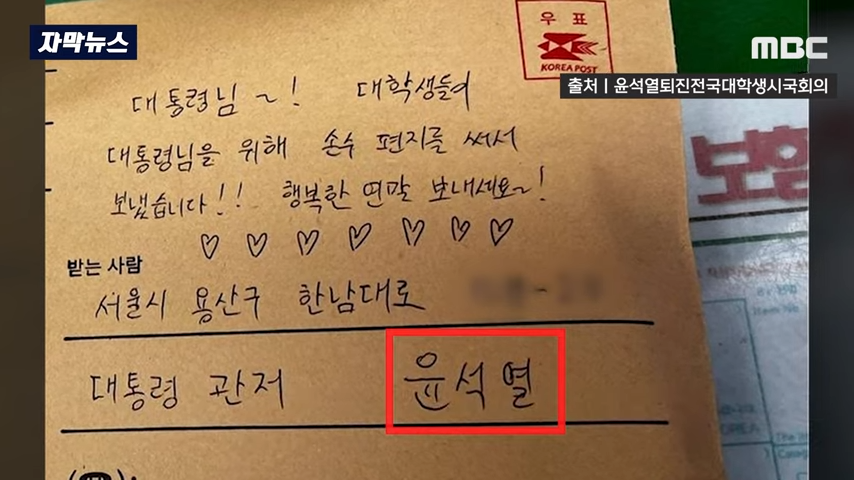 자막뉴스
MBC
우표
KOREA POST
출처 | 윤석열퇴진전국대학생시국회의
대통령님~! 대학생들이
대통령님을 위해 손수 편지를 써서
보냈습니다!! 행복한 연말 보내세요~!
♡ ♡ ♡ ♡ ♡ ♡ ♡
받는 사람
서울시 용산구 한남대로
대통령 관저 윤석열